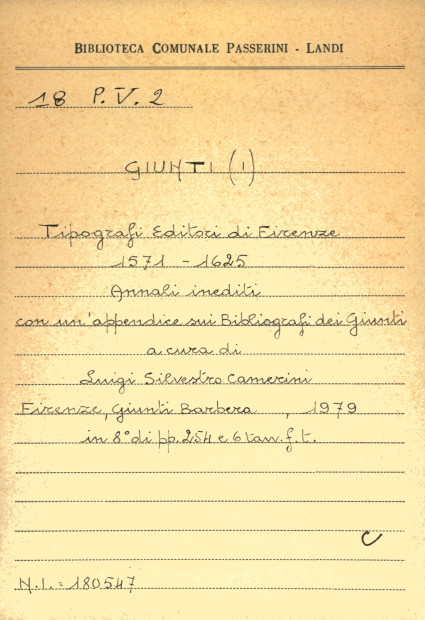 BIBLIOTECA COMUNALE PASSERINI - LANDI
18 P.V.2
GIUNTI (I)
Tipografi Editori di Firenze
1571 - 1625
Annali inediti
con un'appendice sui Bibliografi dei Giunti
a cura di
Luigi Silvestro Camerini
Firenze, Giunti Barbera , 1979
in 8° di pp. 254 e 6 tav. f. t.
C
N.I. = 180547